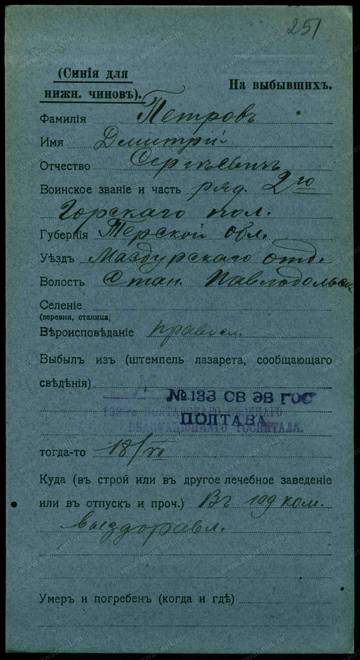 251
(Синія для
нижн. чиновъ).
На выбывшихъ.
Фамилія Петровъ
Имя Дмитрій
Отчество Сергѣевичъ
Воинское званіе и часть ряд. 2го
Горскаго пол.
Губернія Терской обл.
Уѣздъ Маздурскаго отд.
Волость Стан. Павлодольск
Селеніе
(деревня, станица)
Вѣроисповѣданіе правосл.
Выбылъ изъ (штемпель лазарета, сообщающаго
свѣдѣнія)
№133 СВ ЭВ ГОС
ПОЛТАВА
тогда-то 18/VI
Куда (въ строй или въ другое лечебное заведеніе
или въ отпускъ и проч.) Въ ком.
выздоравл.
Умеръ и погребенъ (когда и гдѣ)